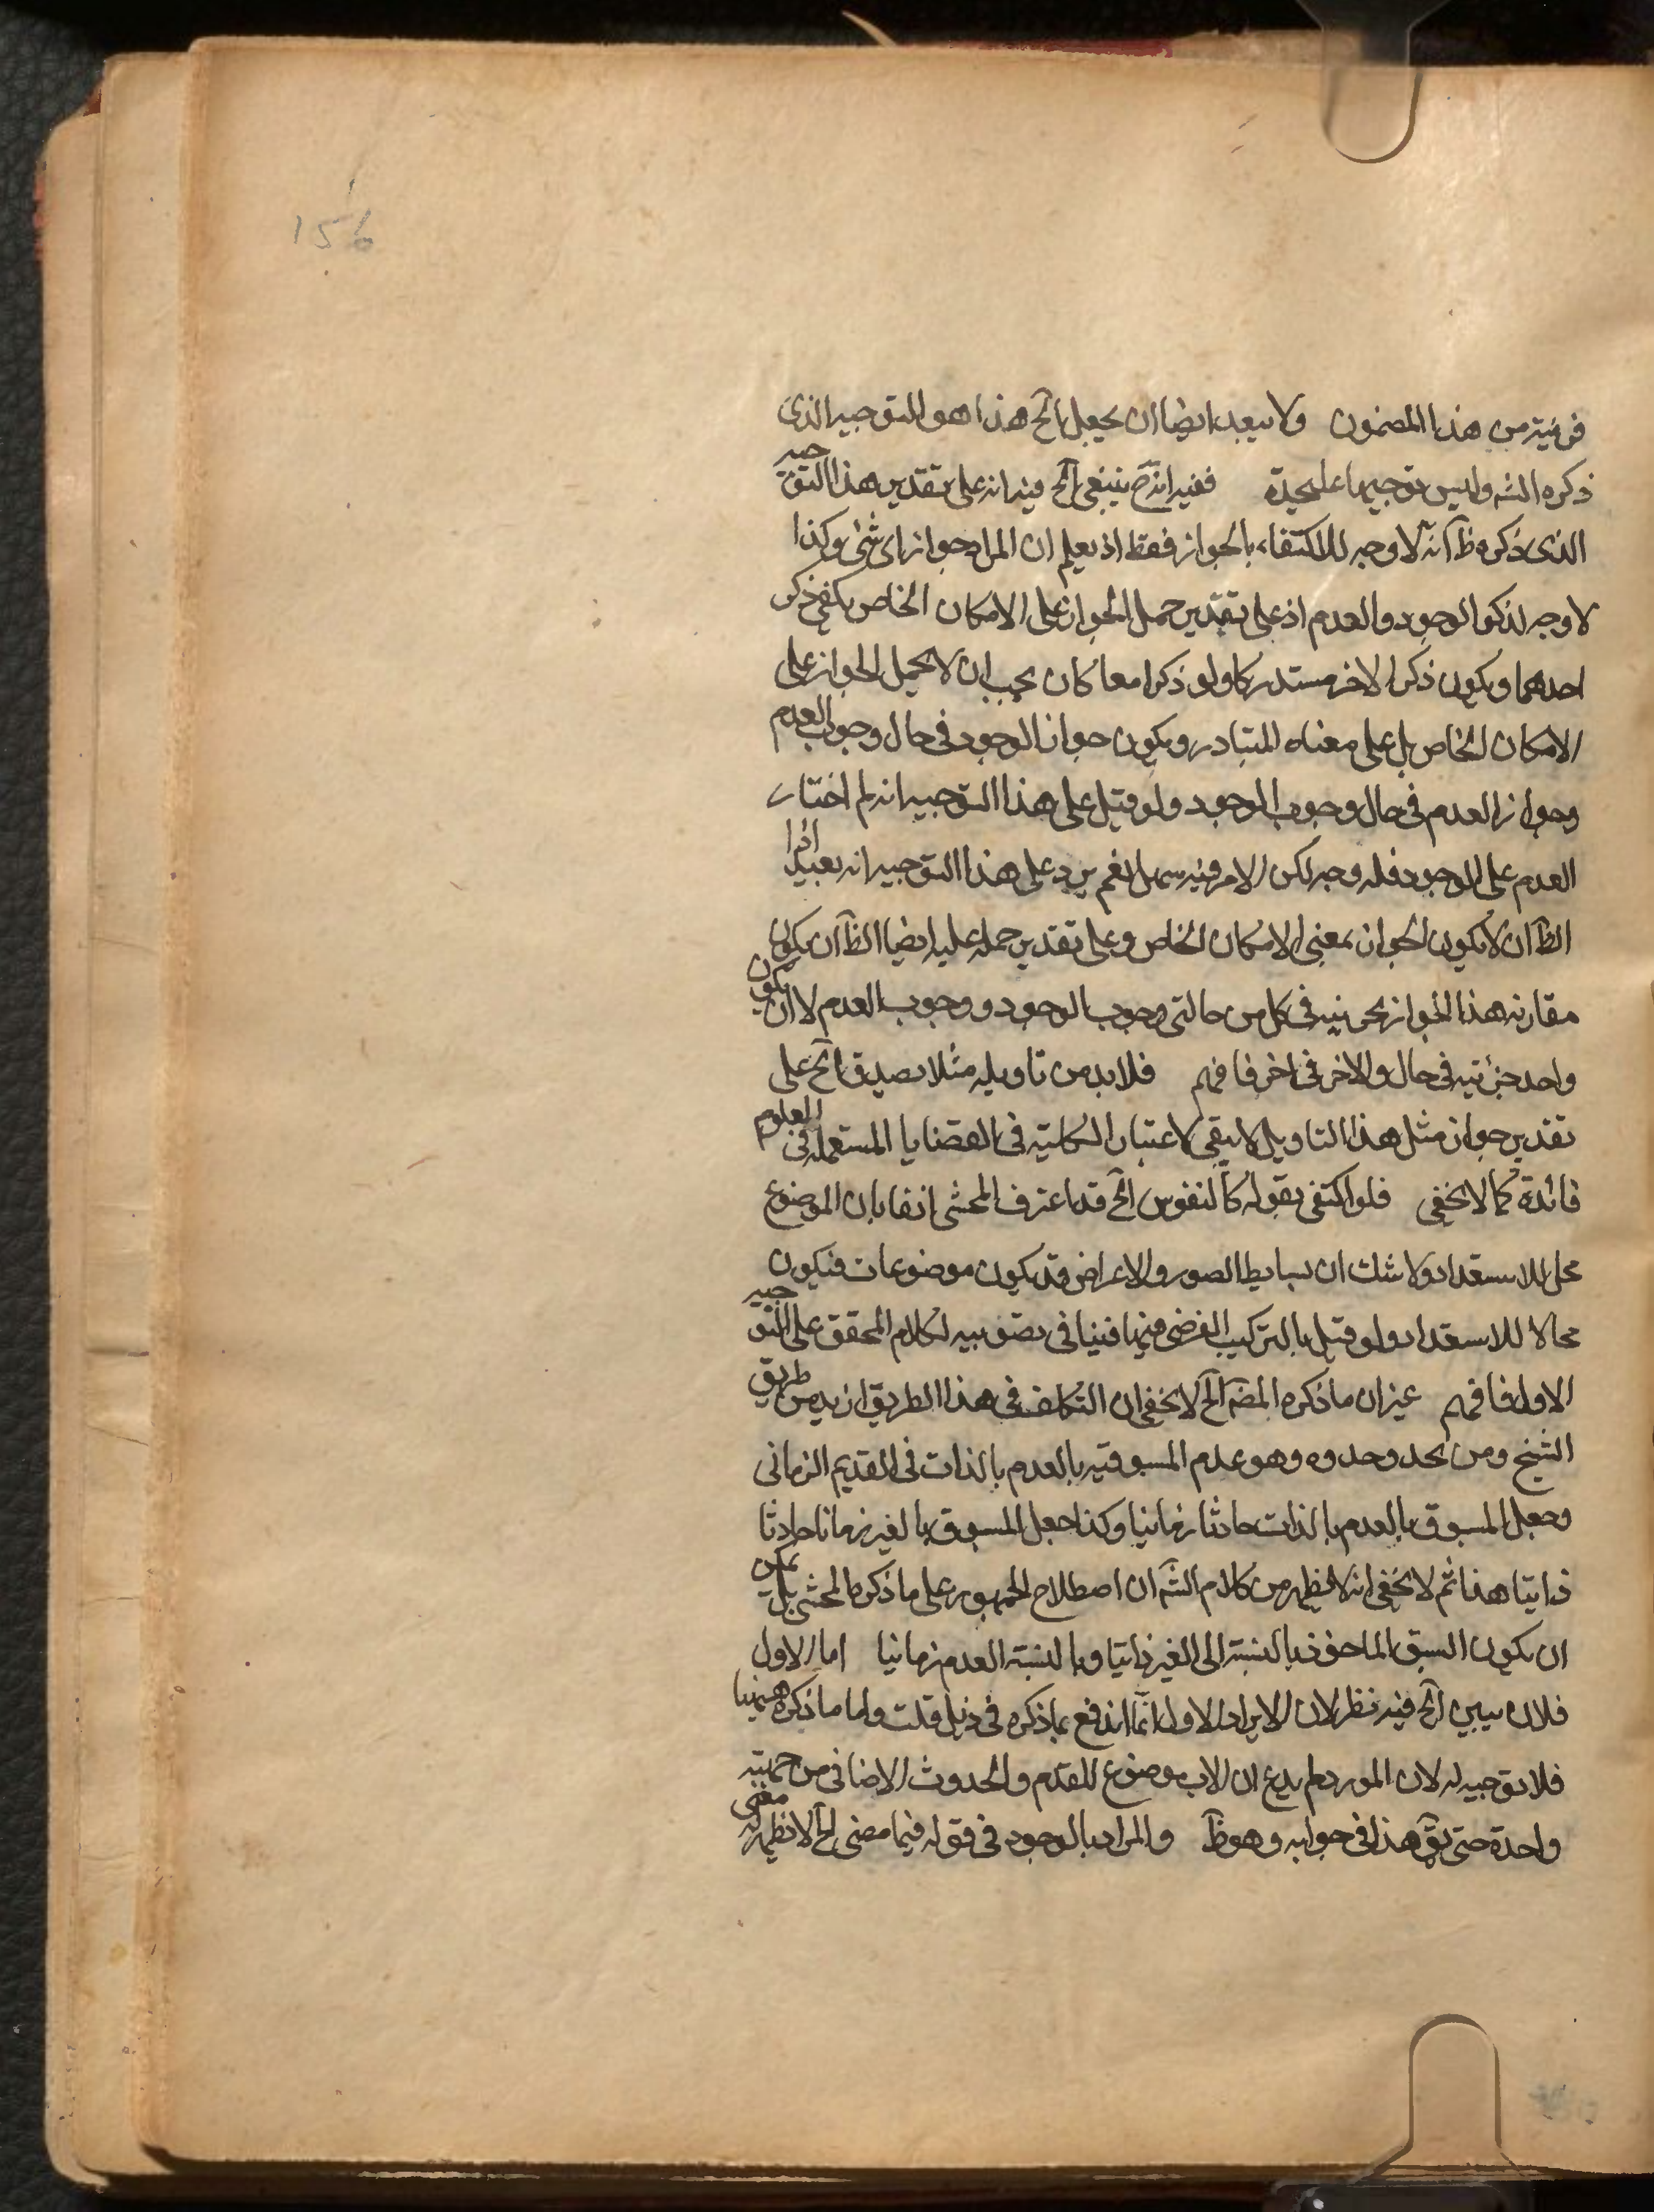 156
قرينة من هذا المضمون ولا يبعد ايضا ان يجعل الخ هذا هو التوجيه الذى
ذكره الشه وليس توجيها عليحدة ففيه انه ح ينبغى الخ فيه انه على تقدير هذا التوجيه
الذى ذكره ظ انه لا وجه للاكتفاء بالجواز فقط اذ يعلم ان المراد جواز اى شئ وكذا
لا وجه لذكر الوجود والعدم اذ على تقدير حمل الجواز على الامكان الخاص يكفى ذكر
احدهما ويكون ذكر الاخر مستدركا ولو ذكرا معا كان يجب ان لا يحمل الجواز على
الامكان الخاص بل على معناه المتبادر ويكون جواز الوجود فى حال وجوب العدم
وجواز العدم فى حال وجوب الوجود ولو قيل على هذا التوجيه انه لم اختار
العدم على الوجود فله وجه لكن الامر فيه سهل نعم يرد على هذا التوجيه انه بعيد اذ
الظ ان لا يكون الجواز بمعنى الامكان الخاص وعلى تقدير حمله عليه ايضا الظ ان يكون
مقارنة هذا الجواز بجزئيه فى كل من حالتى وجوب الوجود ووجوب العدم لا ان يكون
واحد جزئيه فى حال والاخر فى اخر فافهم فلا بد من تاويله مثلا يصدق الخ على
تقدير جواز مثل هذا التاويل لا يبقى لاعتبار الكلية فى القضايا المستعملة فى العلوم
فائدة كما لا يخفى فلو اكتفى بقوله كالنفوس الخ قد اعترف المحشى انفا بان الموضوع
محل للاستعداد ولا شك ان بسايط الصور والاعراض قد يكون موضوعات فتكون
محالا للاستعداد ولو قيل بالتركيب الفرضى فيها فينافى تصويبه لكلام المحقق على التوجيه
الاول فافهم غير ان ما ذكره المض الخ لا يخفى ان التكلف فى هذا الطريق ازيد من طريق
الشيخ ومن يحد وحدوه وهو عدم المسبوقية بالعدم بالذات فى القديم الزمانى
وجعل المسبوق بالعدم بالذات حادثا زمانيا وكذا جعل المسبوق بالغير زمانا حادثا
ذاتيا هذا ثم لا يخفى انه لا يظهر من كلام الشه ان اصطلاح الجمهور على ما ذكره المحشى بل يمكن
ان يكون السبق الماخوذ بالنسبة الى الغير ذاتيا وبالنسبة العدم زمانيا اما الاول
فلان يبين الخ فيه نظر لان الايراد الاول انما اندفع بما ذكره فى ذيل قلت واما ما ذكره هيهنا
فلا توجيه له لان المورد لم يدع ان الاب موضوع للقدم والحدوث الاضافى من جهة
واحدة حتى يق هذا فى جوابه وهو ظ والمراد بالوجود فى قوله فيما مضى الخ لا يظهر له معنى